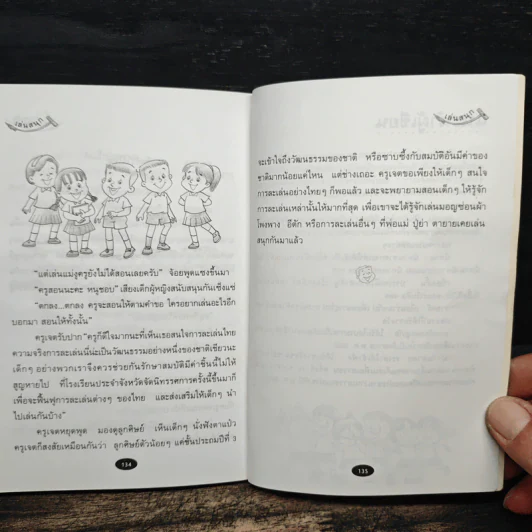 เล่นสนุก
"แต่เล่นแม่งูครูยังไม่ได้สอนเลยครับ" จ้อยพูดแซงขึ้นมา
"ครูสอนนะคะ หนูชอบ" เสียงเด็กผู้หญิงสนับสนุนกันเซ็งแซ่
"ตกลง...ตกลง ครูจะสอนให้ตามคำขอ ใครอยากเล่นอะไรอีก
บอกมา สอนให้ทั้งนั้น"
ครูเจตรับปาก "ครูก็ดีใจมากนะที่เห็นเธอสนใจการละเล่นไทย
ความจริงการละเล่นนี่น่ะเป็นวัฒนธรรมอย่างหนึ่งของชาติเชียวนะ
เด็กๆ อย่างพวกเราจึงควรช่วยกันรักษาสมบัติมีค่าชิ้นนี้ไม่ให้
สูญหายไป ที่โรงเรียนประจำจังหวัดจัดนิทรรศการครั้งนี้ขึ้นมาก็
เพื่อจะฟื้นฟูการละเล่นต่างๆ ของไทย และส่งเสริมให้เด็กๆ นำ
ไปเล่นกันบ้าง"
ครูเจตหยุดพูด มองดูลูกศิษย์ เห็นเด็กๆ นั่งฟังตาแป๋ว
ครูเจตก็สงสัยเหมือนกันว่า ลูกศิษย์ตัวน้อยๆ แค่ชั้นประถมปีที่ ๖
134
เล่นสนุก
จะเข้าใจถึงวัฒนธรรมของชาติ หรือซาบซึ้งกับสมบัติอันมีค่าของ
ชาติมากน้อยแค่ไหน แต่ช่างเถอะ ครูเจตขอเพียงให้เด็กๆ สนใจ
การละเล่นอย่างไทยๆ ก็พอแล้ว และจะพยายามสอนเด็กๆ ให้รู้จัก
การละเล่นเหล่านั้นให้มากที่สุด เพื่อเขาจะได้รู้จักเล่นมอญซ่อนผ้า
โพงพาง อีตัก หรือการละเล่นอื่นๆ ที่พ่อแม่ ปู่ย่า ตายายเคยเล่น
สนุกกันมาแล้ว
135